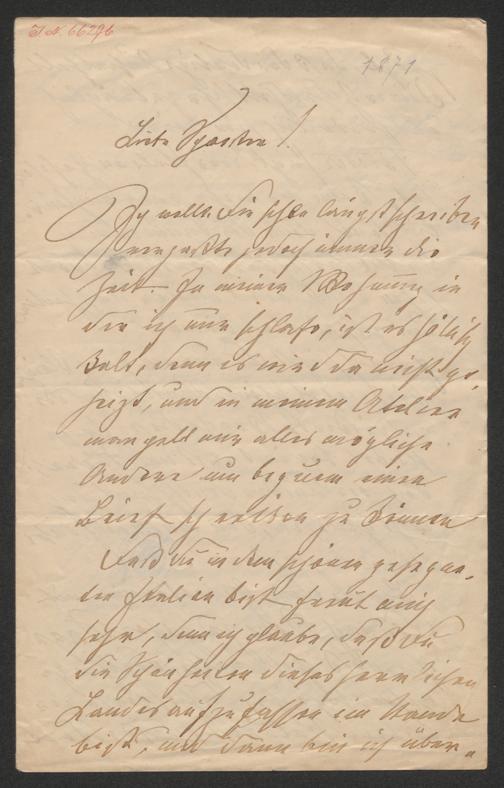 I.N. 66296
1871
Liebe !
Ich wollte Dir schon längst schreiben
vergaßte jedoch immer die
Zeit. In meiner Wohnung in
der ich nur schlafe, ist es häßlich
kalt, denn es wird da nicht ge-
heizt, und in meinem Atelier
mangelt mir alles mögliche
Andere um bequem einen
Brief schreiben zu können
Daß Du in dem schönen gesegne-
ten Italien bist freut mich
sehr, denn ich glaube, daß Du
die Schönheiten dieses herrlichen
Landes aufzufassen im Stande
bist, und dann bin ich über-